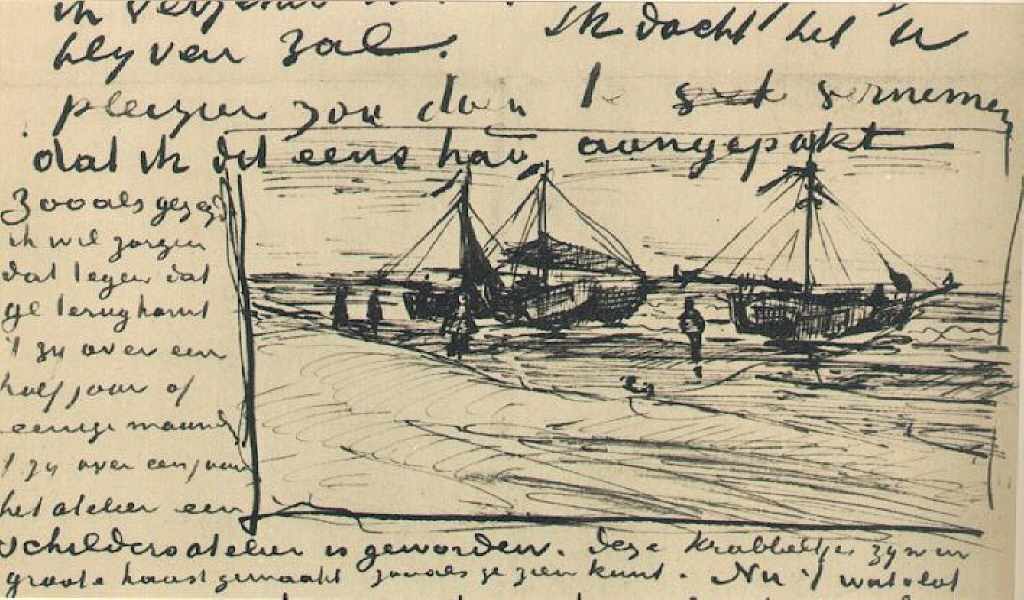 ik verzeker
blyven zal. Ik dacht het U
pleizier zou doen te vernemen
dat ik dit eens had aangepakt
Zooals gezegd
ik wil zorgen
dat tegen dat
ge terugkomt
't zy over een
half jaar of
eenige maand
't zy over een jaar
het atelier een
schildersatelier is geworden. Deze krabbeltjes zyn in
groote haast gemaakt zooals ge zien kunt. Nu 't wat vlot